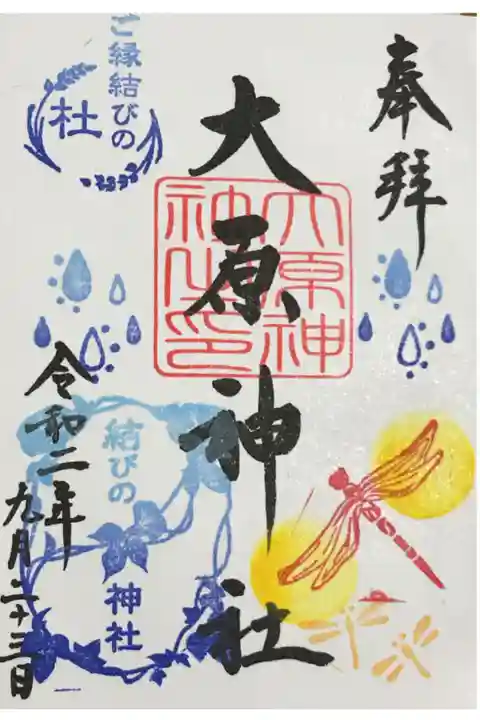 奉拝
大原神社
大原神
社之印
ご縁結びの
杜
結びの
神社
令和二年
九月二十三日